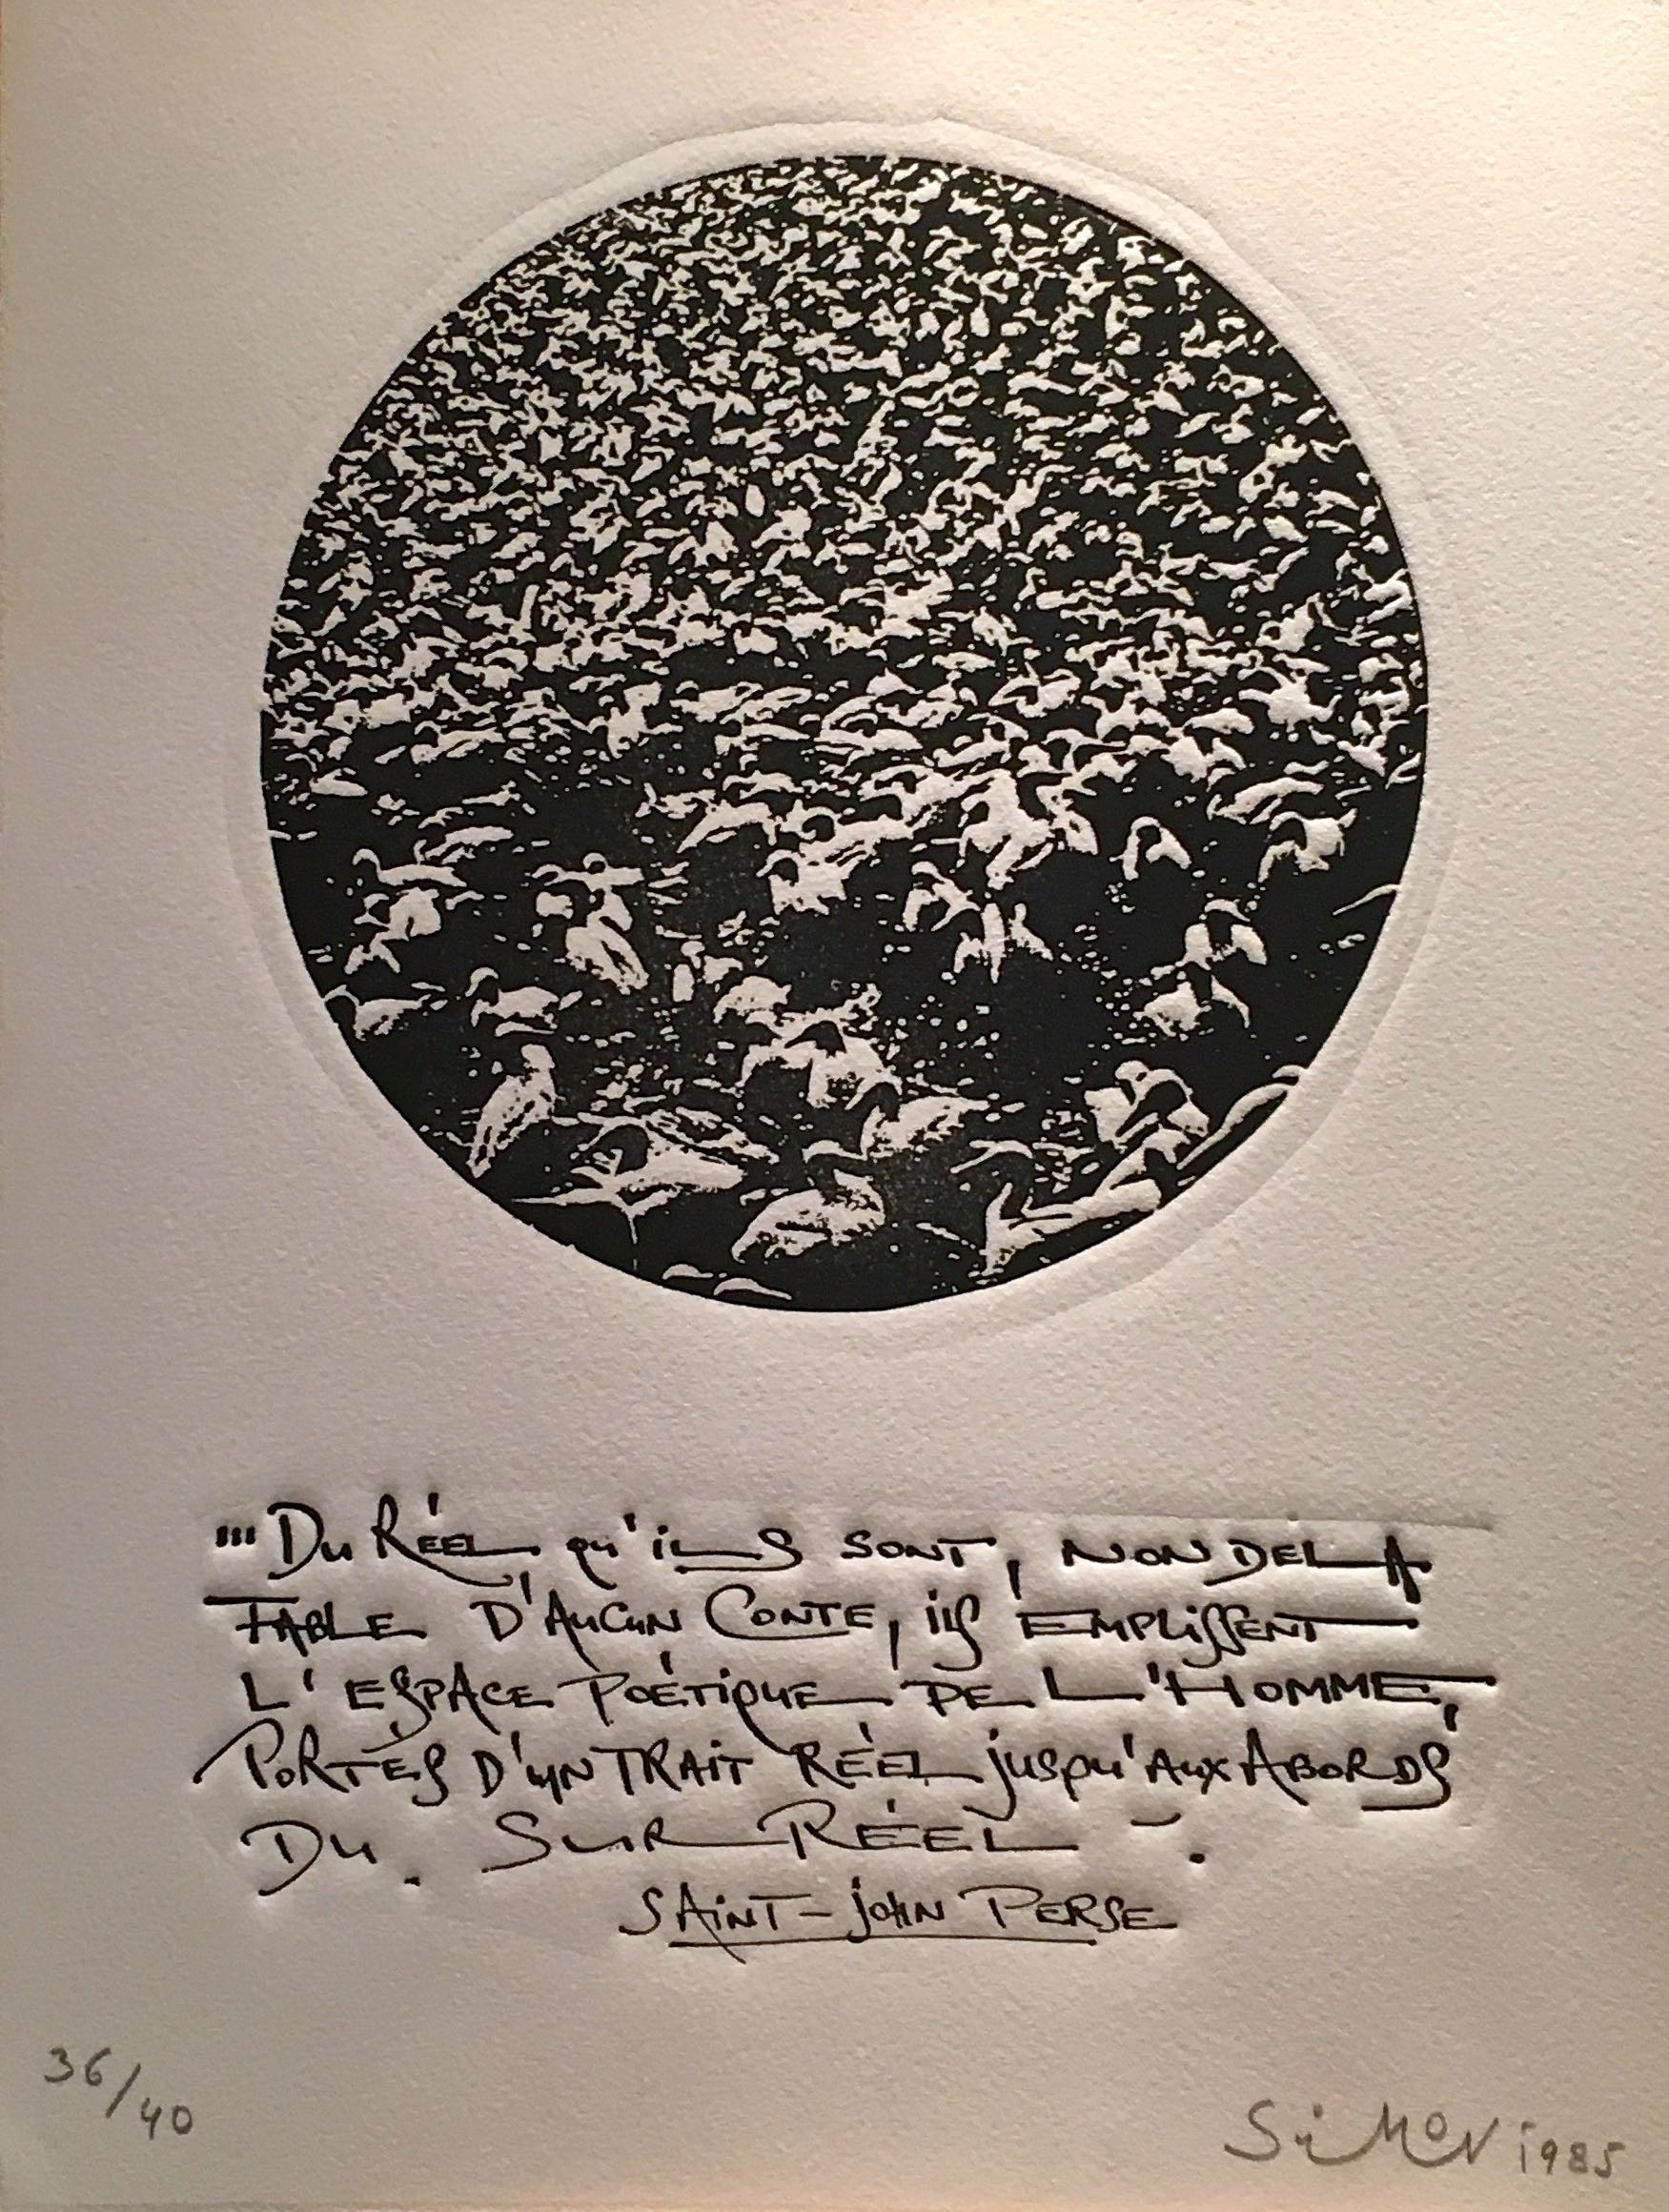 "' Du Réel, qu'ils sont, non de la
fable d'aucun conte, ils emplissent
l'espace poétique de l'homme,
portés d'un trait réel jusqu'aux abords
du surréel ".
Saint-John Perse
36/40
Simon 1985